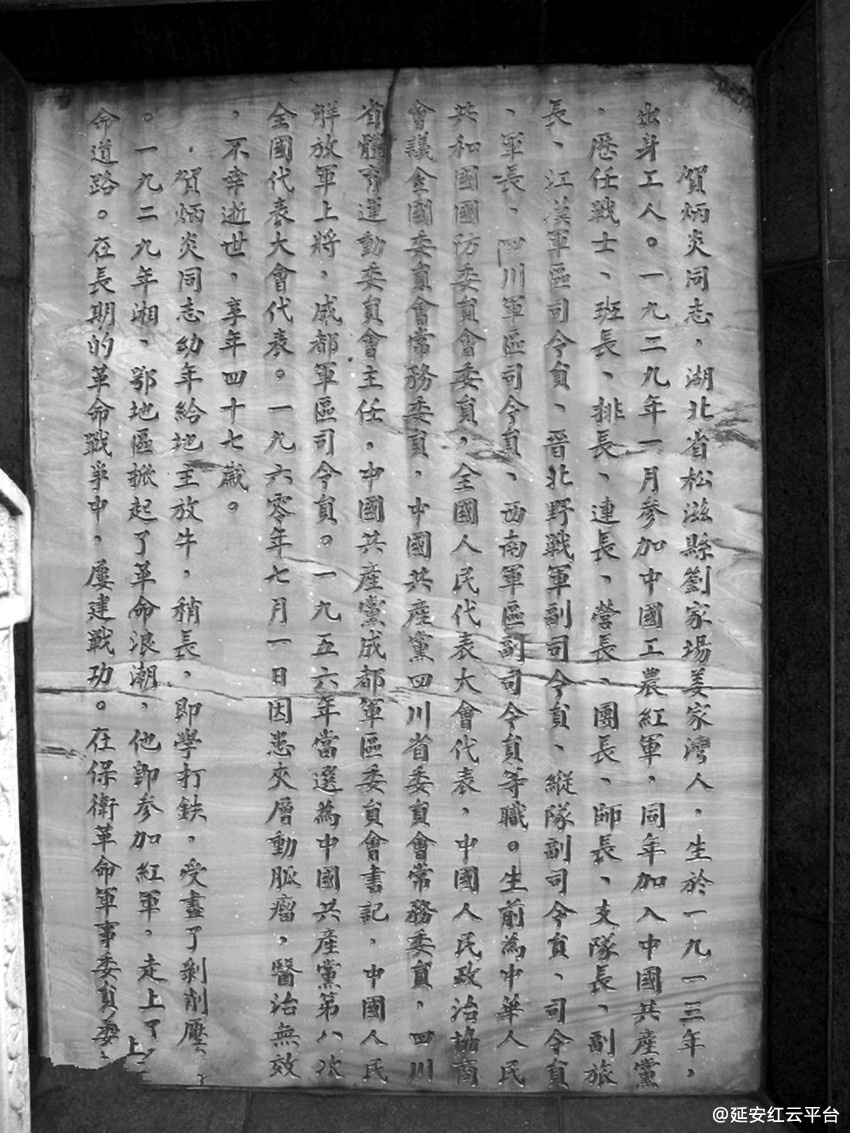 賀炳炎同志，湖北省松滋縣劉家場姜家灣人，生於一九一三年，
出身工人。一九二九年一月參加中國工農紅軍，同年加入中國共產黨
，歷任戰士、班長、排長、連長、營長、團長、師長、支隊長、副旅
長、江漢軍區司令員、晉北野戰軍副司令員、縱隊副司令員、司令員
、軍長、四川軍區司令員、西南軍區副司令員等職。生前為中華人民
共和國國防委員會委員，全國人民代表大會代表，中國人民政治協商
會議全國委員會常務委員，中國共產黨四川省委員會常務委員，四川
省體育運動委員會主任，中國共產黨成都軍區委員會書記，中國人民
解放軍上將，成都軍區司令員。一九五六年當選為中國共產黨第八次
全國代表大會代表。一九六零年七月一日因患夾層動脈瘤，醫治無效
，不幸逝世，享年四十七歲。
賀炳炎同志幼年給地主放牛，稍長，即學打鉄，受盡了剝削壓
。一九二九年湘、鄂地區掀起了革命浪潮，他即參加紅軍，走上了
命道路。在長期的革命戰爭中，屢建戰功。在保衛革命軍事委員委
上
@延安红云平台